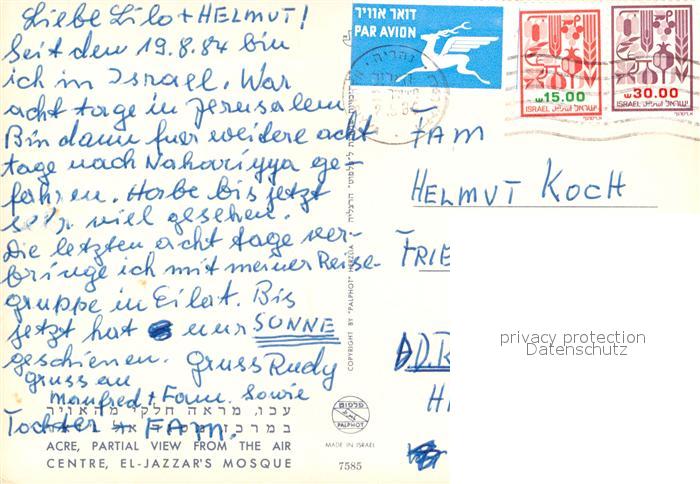 Liebe Lilo + HELMUT!
Seit den 19.8.84 bin
ich in Israel. War
acht tage in Jerusalem
Bin dann fuer weitere acht
tage nach Nahariyya ge-
fahren. Habe bis jetzt
sehr viel gesehen.
Die letzten acht tage ver-
bringe ich mit meiner Reise-
gruppe in Eilat. Bis
jetzt hat nur SONNE
geschienen. Gruss Rudy
Gruss an
Manfred + Fam. Sowie
Tochter + FAM.
עכו, מראה חלקי מהאויר
במרכז מסגד אל
ACRE, PARTIAL VIEW FROM THE AIR
CENTRE, EL-JAZZAR'S MOSQUE
COPYRIGHT BY "PALPHOT" HERZLIA
פלפוט
PALPHOT
MADE IN ISRAEL
7585
דואר אוויר
PAR AVION
נהריה
15.00
ISRAEL ישראל
30.00
ISRAEL ישראל
FAM
HELMUT KOCH
FRIE
privacy protection
Datenschutz